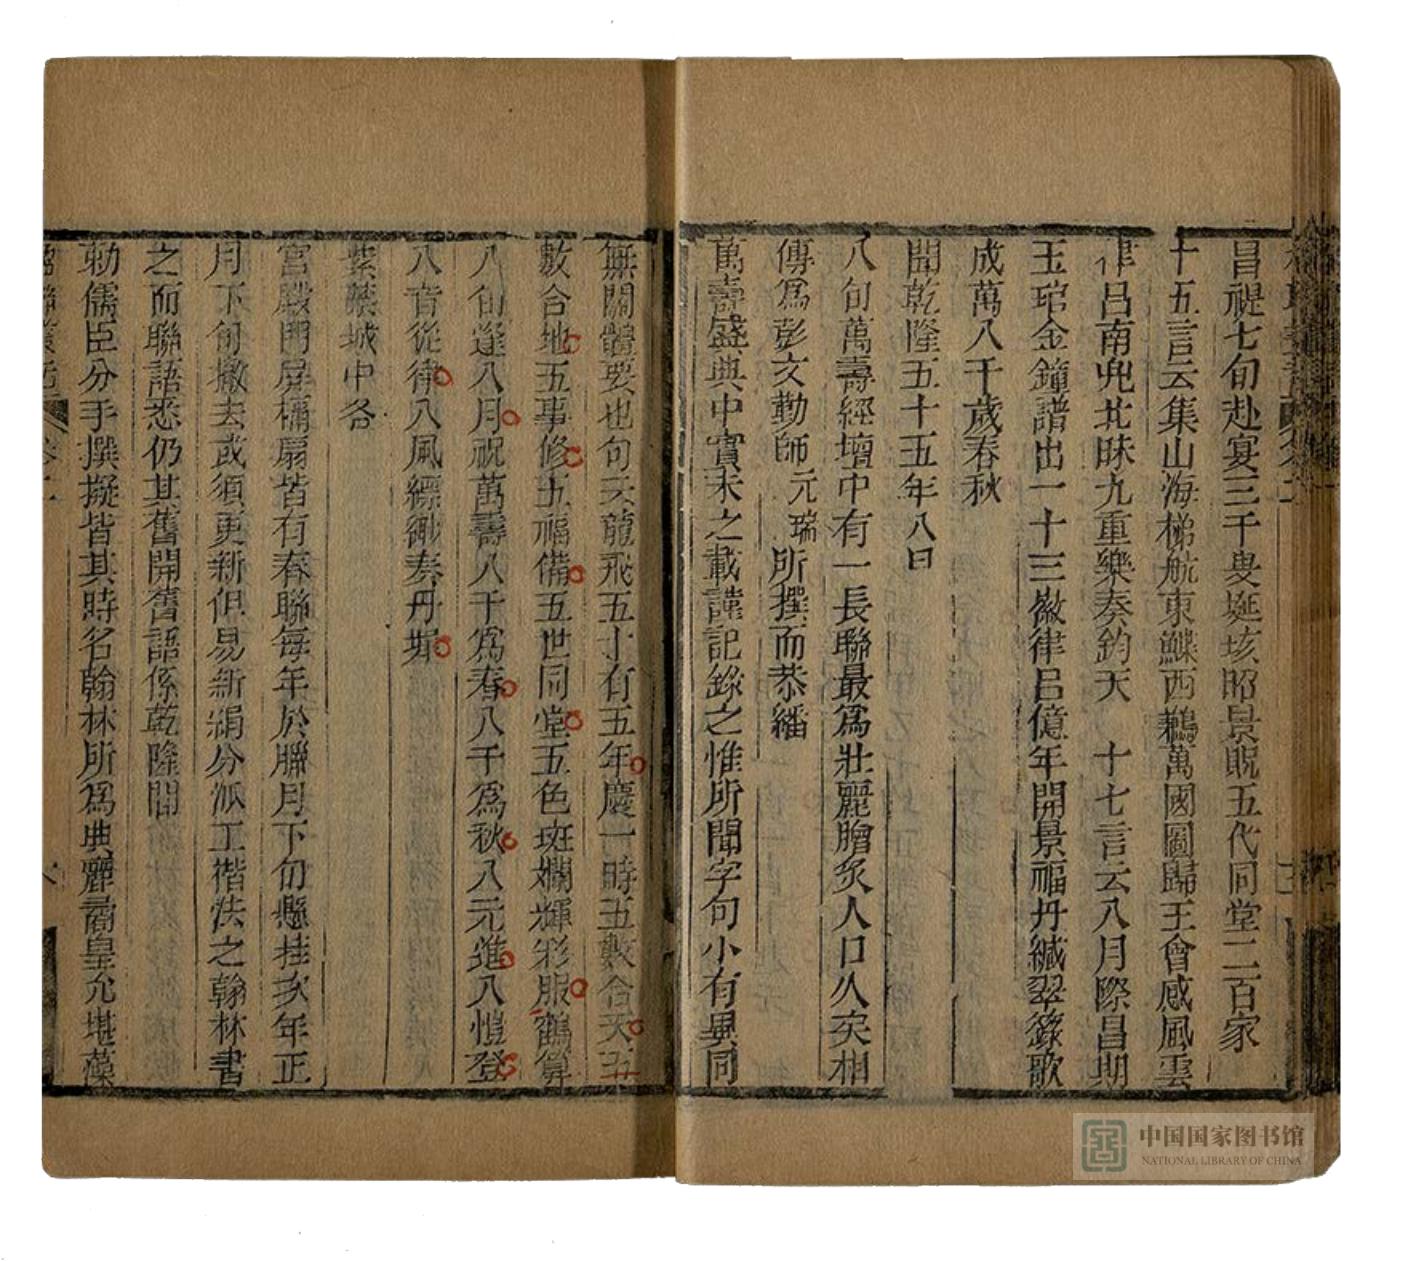 昌禔七旬赴宴三千叟埏垓昭景貺五代同堂二百家
十五言云集山海梯航東鰈西鶼萬國圖歸王會感風雲
律呂南兠北昧九重樂奏鈞天 十七言云八月際昌期
玉琯金鐘譜出一十三徽律呂億年開景福丹緘翠籙歌
成萬八千歲春秋
聞乾隆五十五年八日
八旬萬壽經壇中有一長聯最爲壯麗膾炙人口久矣相
傳爲彭文勤師元瑞所撰而恭繙
萬壽盛典中實未之載謹記錄之惟所聞字句小有異同
無關體要也句云龍飛五十有五年慶一時五數合天五
數合地五事修五福備五世同堂五色斑斕輝彩服鶴算
八旬逢八月祝萬壽八千爲春八千爲秋八元進八愷登
八音從律八風縹緲奏丹墀
紫禁城中各
宮殿門屏槅扇皆有春聯每年於臘月下旬懸挂次年正
月下旬撤去或須更新但易新絹分派工楷法之翰林書
之而聯語悉仍其舊聞舊語係乾隆間
勅儒臣分手撰擬皆其時名翰林所爲典麗矞皇允堪藻
卷二
中国国家图书馆
NATIONAL LIBRARY OF CHINA